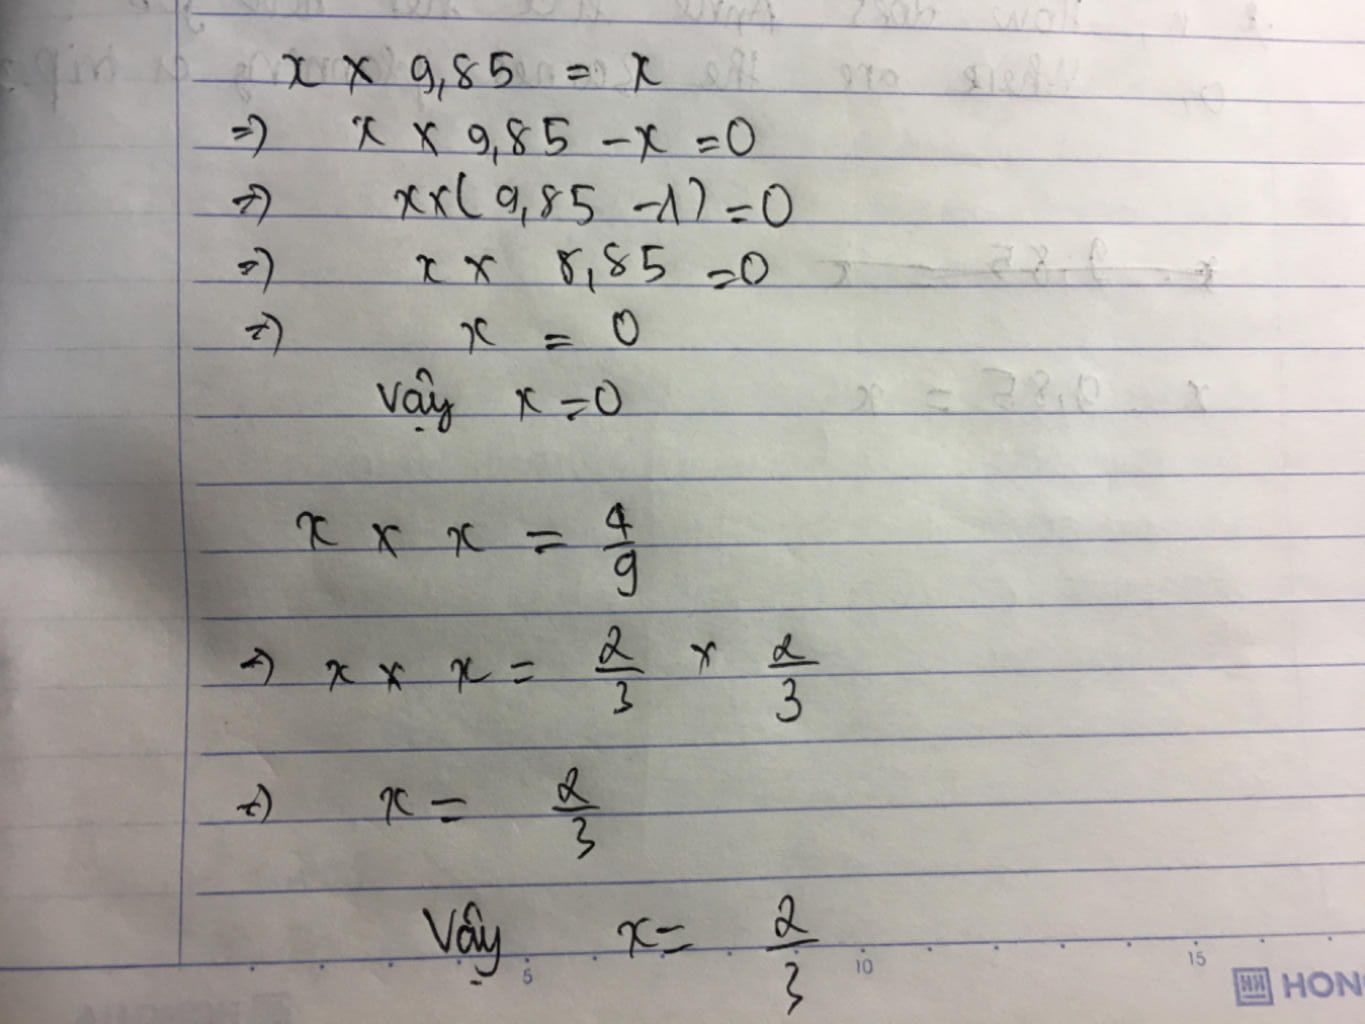 x × 9,85 = x
=) x × 9,85 - x = 0
=) x×( 9,85 - 1) = 0
=) x × 8,85 = 0
=) x = 0
Vậy x = 0
x × x = 4/9
=) x × x = 2/3 × 2/3
=) x = 2/3
Vậy x = 2/3
5 10 15
HON